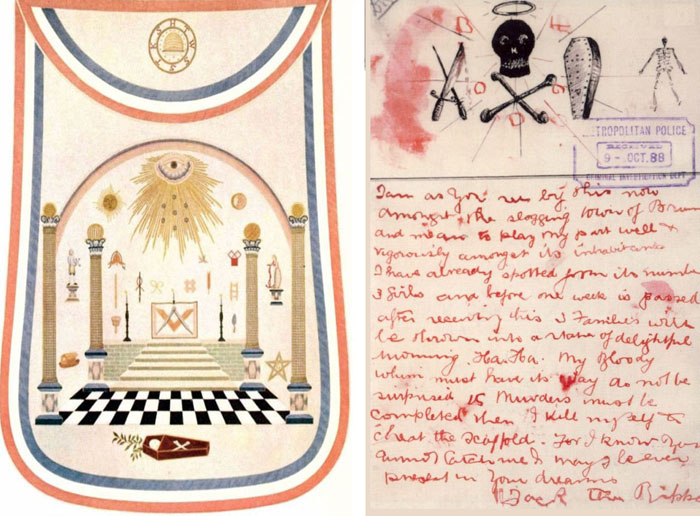 TROPOLITAN POLICE
RECEIVED
9 - OCT. 88
CRIMINAL INVESTIGATION DEPT
I am as you see by this now
amongst the slogging town of
and mean to play my part well &
vigorously amongst its inhabitants
I have already spotted from its
3 girls and before one week is passed
after receiving this 3 Families will
be thrown into a state of delightful
mourning. Ha. Ha. My Bloody
whim must have its way do not be
surprised Murders must be
completed then I kill myself &
cheat the scaffold. For I know you
cannot catch me & may I be ever
present in your dreams
Jack the Rippe